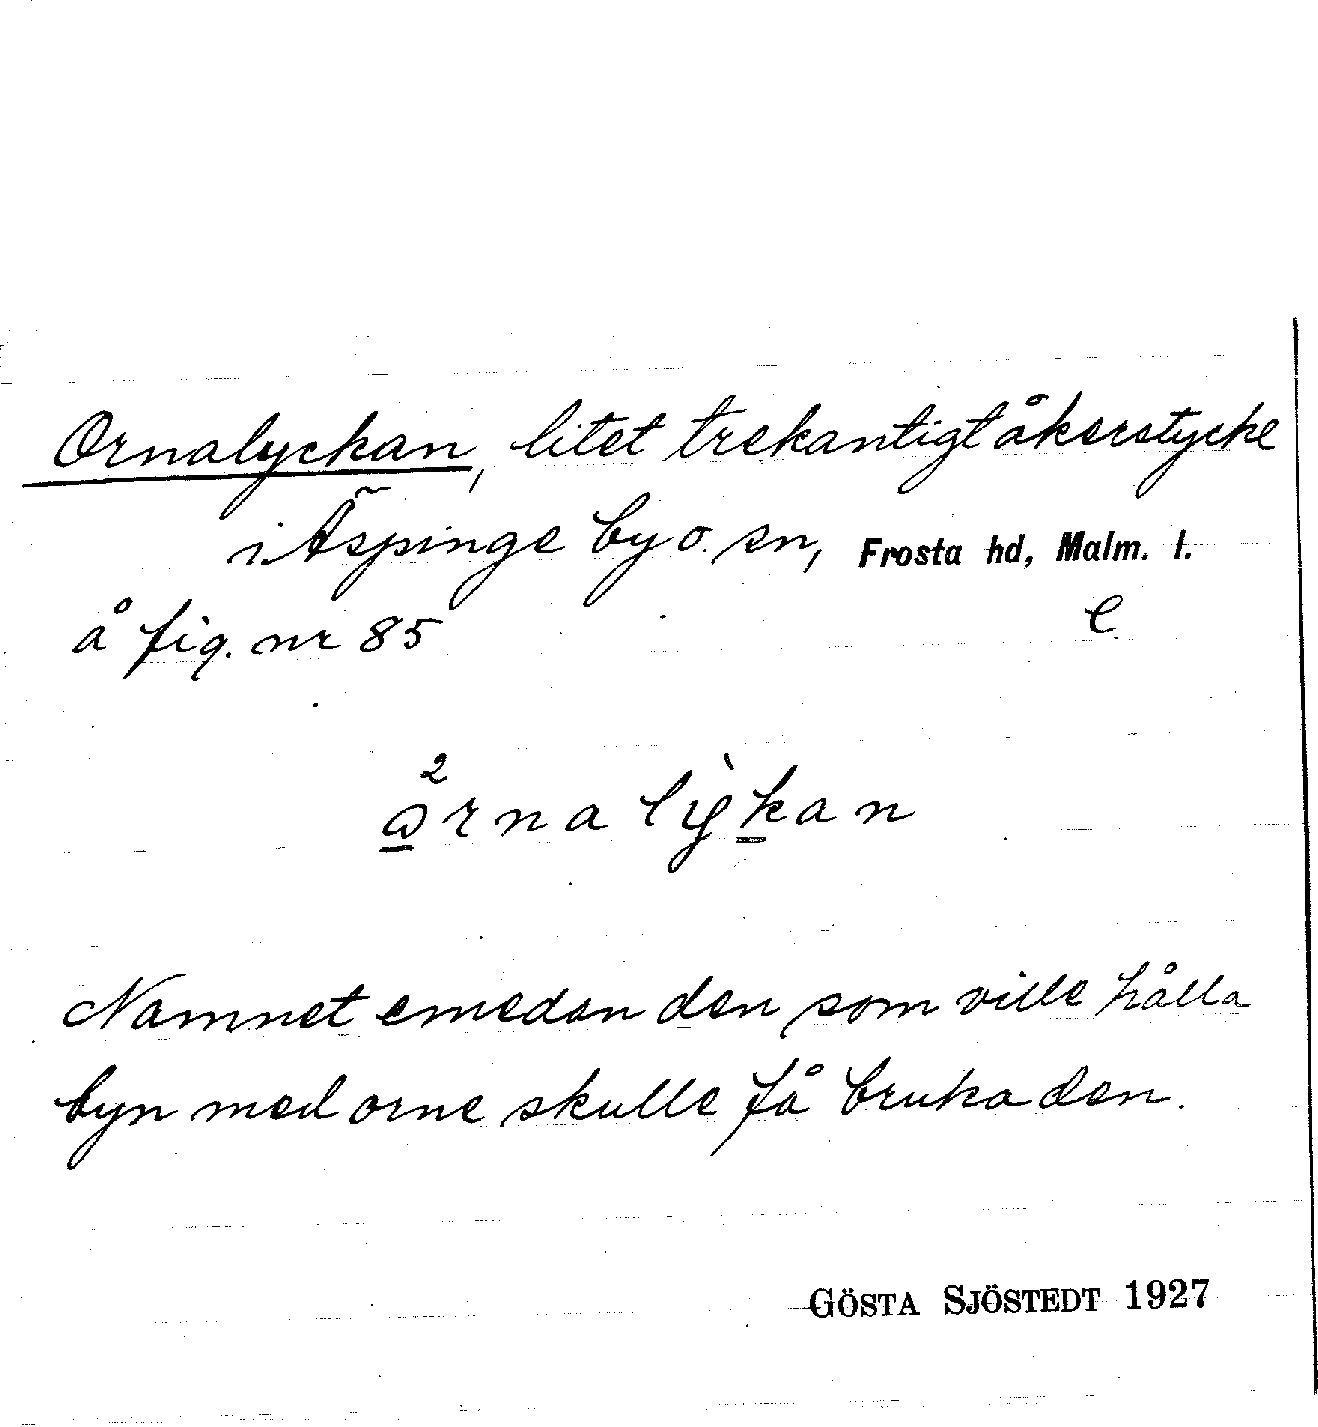 Ornalyckan, litet trekantigt åkerstycke
i Äspinge by o. sn, Frosta hd, Malm. l.
å fig. nr 85 e
Namnet emedan den som ville hålla
byn med orne skulle få bruka den.
GÖSTA SJÖSTEDT 1927